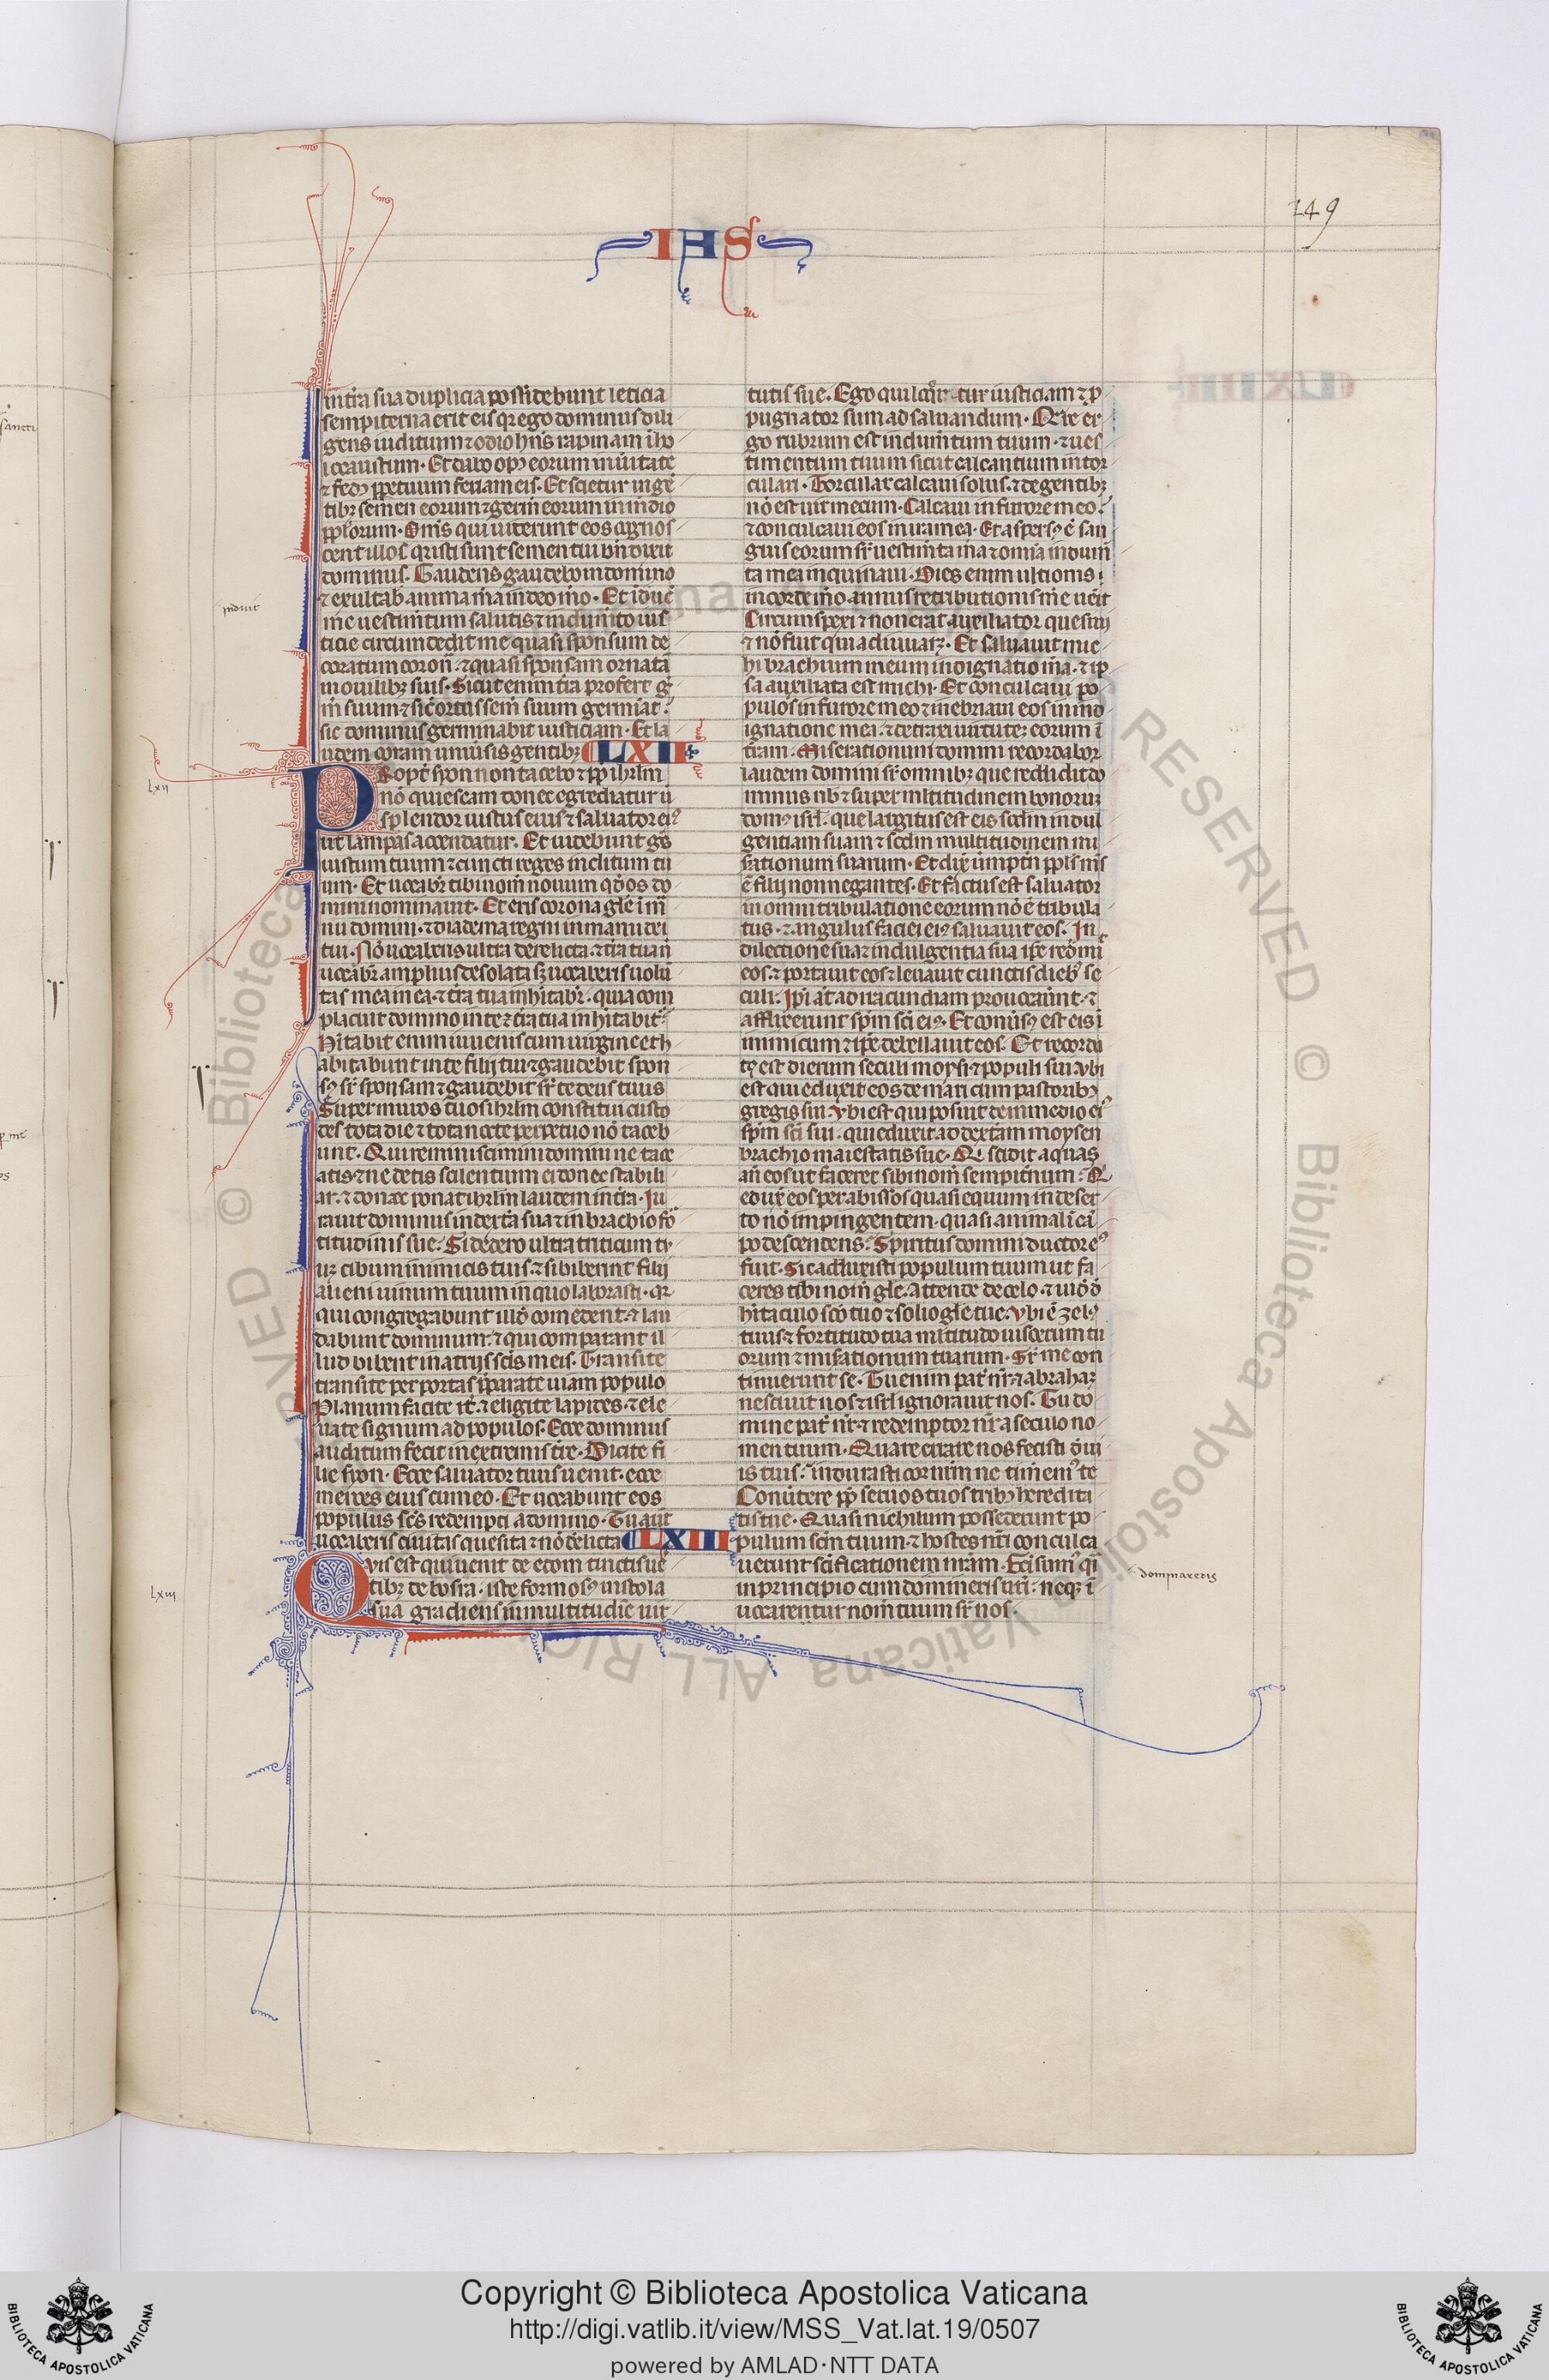 149
IAS
in tr̄a sua duplicia possidebunt leticia
sempiterna erit eis qꝛ ego dominus dili
gens iuditium ⁊ odio hn̄s rapinam i ho
locaustum. Et dabo opꝰ eorum in ūitate
⁊ fedꝰ ꝑpetuum feriam eis. Et scietur in gē
tibꝫ semen eorum ⁊ germē eorum in medio
pp̄lorum. Om̄s qui uiderint eos cognos
cent illos qꝛ isti sunt semen cui bn̄dixit
dominus. Gaudens gaudebo in domino
⁊ exultab̄ anima m̄a in deo m̄o. Et iduē
me uestim̄tum salutis ⁊ indum̄to ius
ticie circumdedit me quasi sponsum de
coratum coron̄. ⁊ quasi sponsam ornatā
monilibꝫ suis. Sicut enim tr̄a profert ḡ
m̄ suum ⁊ sic̄ ortus sem̄ suum germiat.
sic dominus germinabit iusticiam. Et la
udem coram uniūsis gentibꝫ LXII
indiuit
Lxii
Propt̄ syon non tacebo ⁊ ꝓp̄ ihrl̄m
nō quiescam donec egrediatur ū
splendor iustus eius ⁊ saluator eiꝰ
ut lampas accendatur. Et uidebunt gēs
iustum tuum ⁊ cuncti reges inclitum tu
um. Et uocabr̄ tibi nom̄ nouum qđ os do
mini nominauit. Et eris corona gl̄e i m̄
nu domini. ⁊ diadema regni in manu dei
tui. Nō uocaberis ultra derelicta. ⁊ tr̄a tua n̄
uocabr̄ amplius desolata sꝫ uocaberis uolū
tas mea in ea. ⁊ tr̄a tua inhitabr̄. quia com
placuit domino in te ⁊ tr̄a tua inhitabit̄
Hitabit enim iuuenis cum uirgine et h
abitabunt in te filij tui ⁊ gaudebit spon
sꝰ sr̄ sponsam ⁊ gaudebit sr̄ te deus tuus
Super muros tuos ihrl̄m constitui custo
des tota die ⁊ tota nocte perpetuo nō taceb
unt. Qui reminiscimini domini ne tace
atis. ⁊ ne detis scilentium ei donec stabili
at. ⁊ donec ponat ihrl̄m laudem in tr̄a. Iu
rauit dominus in dext̄a sua ⁊ in brachio fo
titudinis sue. Si dedero ultra triticum tu
uꝫ cibum inimicis tuis. ⁊ si biberint filij
alieni uinum tuum in quo laborasti. qꝛ
qui congregabunt illđ comedent. ⁊ lau
dabunt dominum. ⁊ qui comportant il
lud bibent in atrijs scīs meis. Transite
transite per portas p̄parate uiam populo
Planum facite it̄. ⁊ eligite lapides. ⁊ ele
uate signum ad populos. Ecce dominus
auditum fecit in extremis tr̄e. Dicite fi
lie syon. Ecce saluator tuus uenit. ecce
merces eius cum eo. Et uocabunt eos
populus sc̄s redempti a domino. Tu aut̄
uocaberis ciuitas quesita ⁊ nō đelicta LXIII
Lxiii
Qvis est qui uenit de edom tinctis ue
tibꝫ de bosra. iste formosꝰ in stola
sua gradiens in multitudīe uir
tutis sue. Ego qui loquor iusticiam ⁊ ꝓ
pugnator sum ad saluandum. Qre er
go rubrum est indum̄tum tuum. ⁊ ues
timentum tuum sicut calcantium in tor
culari. Torcular calcaui solus. ⁊ de gentibꝫ
nō est uir mecum. Calcaui in furore meo.
⁊ conculcaui eos in ira mea. Et aspersꝰ ē san
guis eorum sr̄ uestim̄ta m̄a ⁊ omnia indum̄
ta mea inquinaui. Dies enim ultionis
in corde m̄o annus retributionis m̄e uēit
Circumspexi ⁊ non erat auxiliator quesiui
⁊ nō fuit qui adiuuarꝫ. Et saluauit mic
hi brachium meum indignatio m̄a. ⁊ ip
sa auxiliata est michi. Et conculcaui po
pulos in furore meo ⁊ inebriaui eos in ind
ignatione mea. ⁊ detraxi uirtute. eorum ī
tr̄am. Miserationum domini recordabor
laudem domini sr̄ omnibꝫ que reddidit do
minus nb̄ ⁊ super ml̄titudinem bonoruꝫ
domꝰ isr̄l. que largitus est eis scd̄m indul
gentiam suam ⁊ scd̄m multitudinem mi
s̄ationum suarum. Et dix̄ ūmptn̄ ppl̄s m̄s
ē filij non negantes. Et factus est saluator
in omni tribulatione eorum nō ē tribula
tus. ⁊ angulus faciei eiꝰ saluauit eos. In
dilectione sua ⁊ indulgentia sua ip̄e redōmi
eos. ⁊ portauit eos ⁊ leuauit cunctis diebꝰ se
culi. Ipi at̄ ad iracundiam prouocauīt. ⁊
afflixerunt spm̄ sc̄i eiꝰ. Et conūsꝰ est eis ī
inimicum ⁊ ip̄e debellauit eos. Et recorda
tꝰ est dierum seculi moysi. ⁊ populi sui Vbi
est qui eduxit eos de mari cum pastoribꝰ
gregis sui. Vbi est qui posuit in medio eiꝰ
spm̄ sc̄i sui. qui eduxit ad dextam moysen
brachio maiestatis sue. Qi scidit aquas
an̄ eos ut faceret sibi nom̄ sempit̄num. Qi
edux̄ eos per abissos quasi equum in deser
to nō impingentem. quasi animal ī cā
po descendens. Spiritus domini ductor eiꝰ
fuit. Sic adduxisti populum tuum ut fa
ceres tibi nom̄ gl̄e. Attende de celo. ⁊ uid̄ đ
hitaculo scō tuo ⁊ solio gl̄e tue. Vbi ē zelꝰ
tuus ⁊ fortitudo tua ml̄titudo uiscerum tu
orum ⁊ mis̄ationum tuarum. Sr̄ me con
tinuerunt se. Tu enim pat̄ nr̄. ⁊ abrahaꝫ
nesciuit nos ⁊ isrl̄ ignorauit nos. Tu do
mine pat̄ nr̄. ⁊ redemptor nr̄ a seculo no
men tuum. Quare errare nos fecisti đ ui
is tuis. indurasti cor nr̄m ne tim̄emꝰ te
Conūtere ꝓp̄ seruos tuos tribꝰ heredita
tis tue. Quasi nichilum possederunt po
pulum scm̄ tuum. ⁊ hostes nr̄i conculca
uerunt sc̄ificationem tuam. Fc̄i sumꝰ q̄i
in principio cum dominēis nr̄i. neqꝫ ī
uocarentur nom̄ tuum sr̄ nos.
dominareris
Copyright © Biblioteca Apostolica Vaticana
http://digi.vatlib.it/view/MSS_Vat.lat.19/0507
powered by AMLAD·NTT DATA
BIBLIOTECA APOSTOLICA VATICANA
BIBLIOTECA APOSTOLICA VATICANA
© Biblioteca Apostolica Vaticana ALL RIGHTS RESERVED